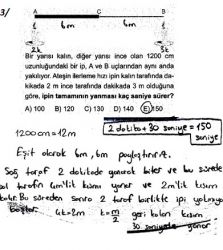 3/
A C B
6m 6m
2k 3k
Bir yarısı kalın, diğer yarısı ince olan 1200 cm
uzunluğundaki bir ip, A ve B uçlarından aynı anda
yakılıyor. Ateşin ilerleme hızı ipin kalın tarafında da-
kikada 2 m ince tarafında dakikada 3 m olduğuna
göre, ipin tamamının yanması kaç saniye sürer?
A) 100 B) 120 C) 130 D) 140 E) 150
1200cm=12m
2 dakika + 30 saniye = 150
saniye
Eşit olarak 6m, 6m paylaştırır.
Sağ taraf 2 dakikada yanarak biter ve bu sürede
sol tarafın 4m'lik kısmı yanar ve 2m'lik kısım
kalır. Bu süreden sonra 2 taraf birlikte ipi yakmaya
başlar.
4k=2m k=m/2 geri kalan kısım
30 saniyede yanar